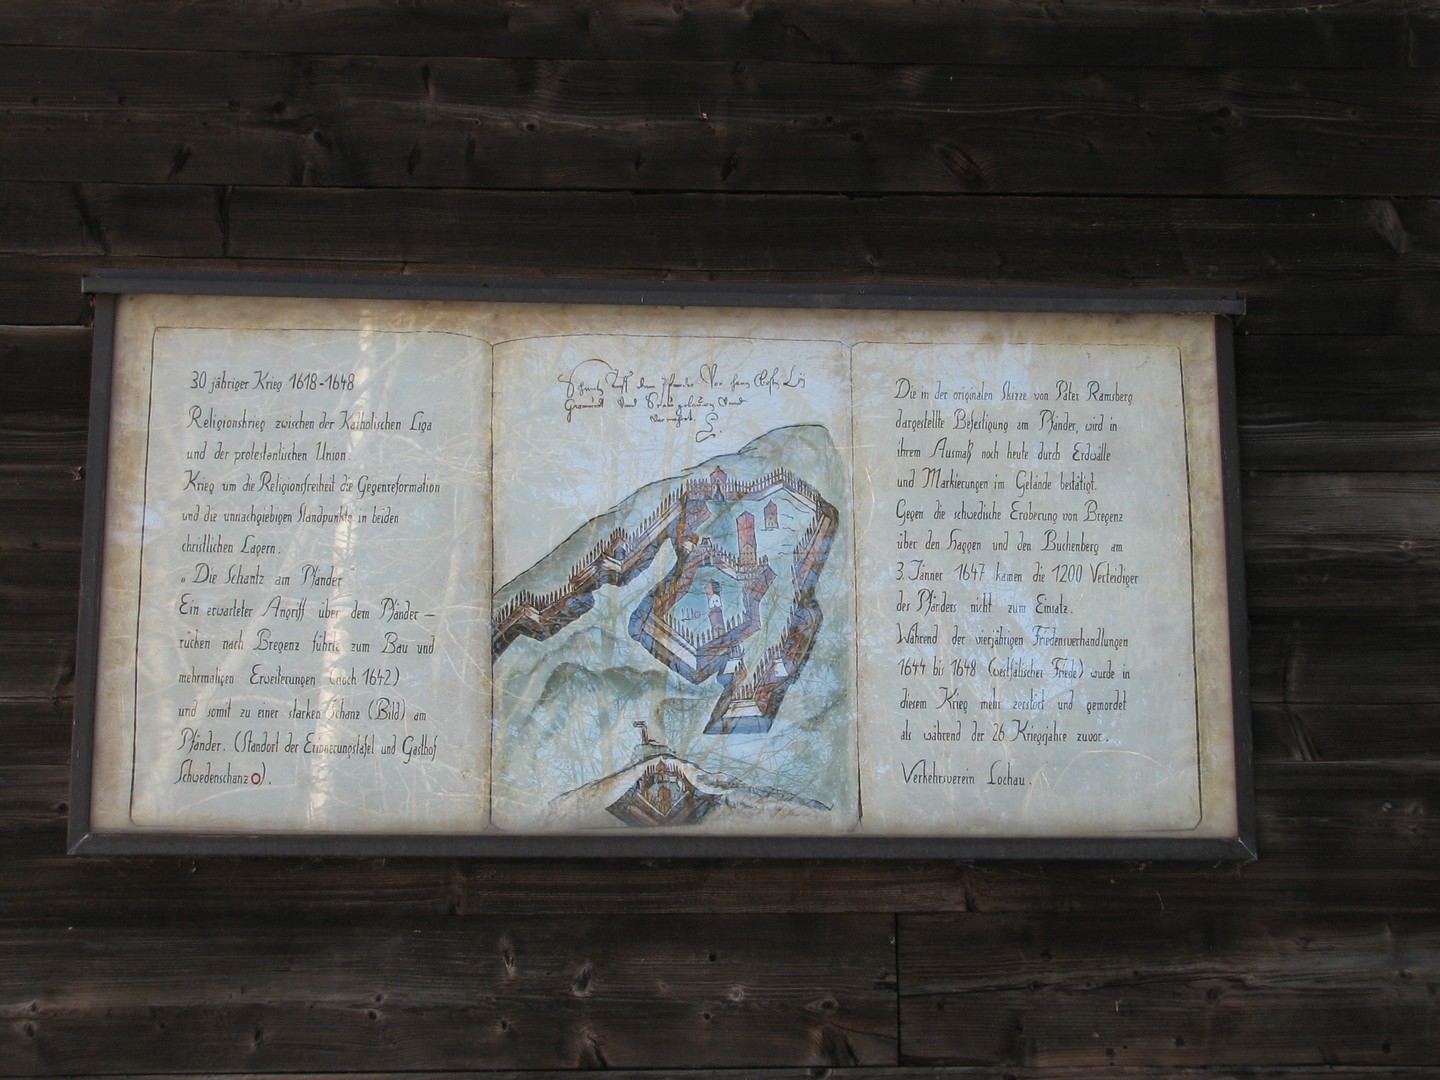 30 jähriger Krieg 1618-1648
Religionskrieg zwischen der Katholischen Liga
und der protestantischen Union.
Krieg um die Religionsfreiheit die Gegenreformation
und die unnachgiebigen Standpunkte in beiden
christlichen Lagern.
„Die Schantz am Pfänder"
Ein erwarteter Angriff über dem Pfänder –
rücken nach Bregenz führte zum Bau und
mehrmaligen Erweiterungen (noch 1642)
und somit zu einer starken Schanz (Bild) am
Pfänder. (Standort der Erinnerungstafel und Gasthof
Schwedenschanz o).
Schantz Auff dem Pfender Vor
Grammont Vnd
Verwahrt.
Die in der originalen Skizze von Pater Ramsberg
dargestellte Befestigung am Pfänder, wird in
ihrem Ausmaß noch heute durch Erdwälle
und Markierungen im Gelände bestätigt.
Gegen die schwedische Eroberung von Bregenz
über den Haggen und den Buchenberg am
3. Jänner 1647 kamen die 1200 Verteidiger
des Pfänders nicht zum Einsatz.
Während der vierjährigen Friedensverhandlungen
1644 bis 1648 (westfälischer Friede) wurde in
diesem Krieg mehr zerstört und gemordet
als während der 26 Kriegsjahre zuvor.
Verkehrsverein Lochau.